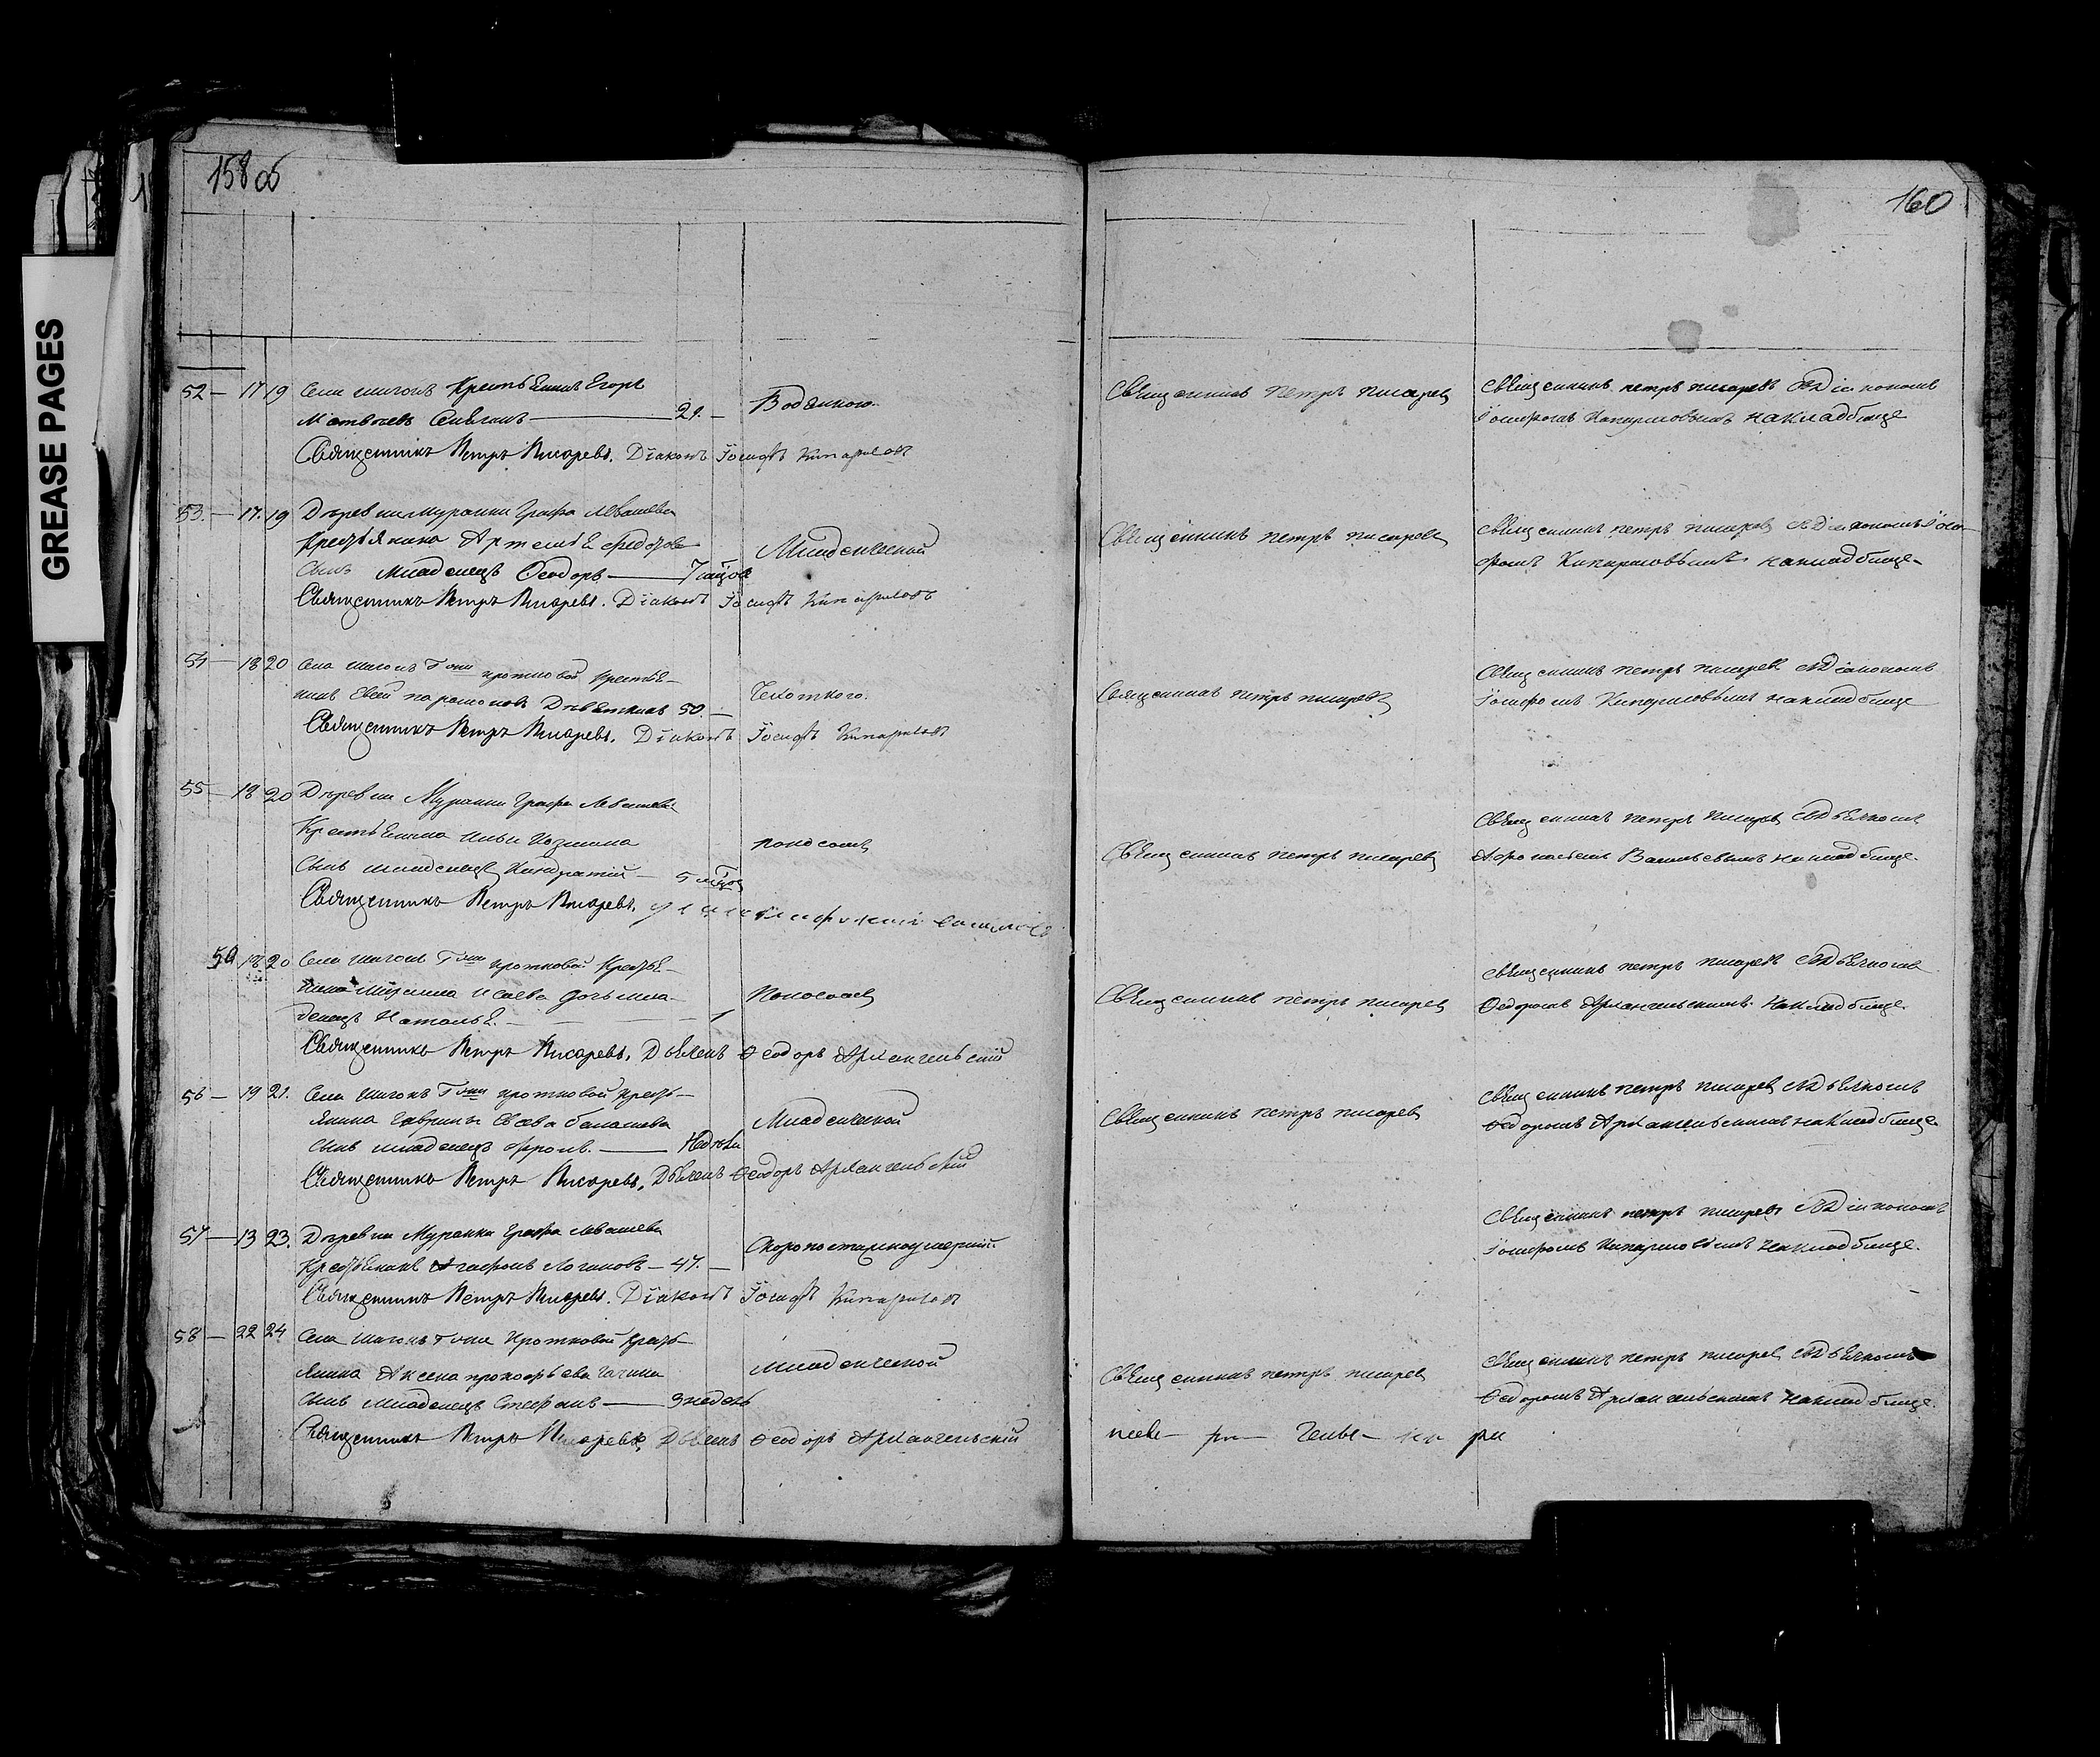 GREASE PAGES
158 об
160
52 — 17 19 Села Шигонъ Крестьянинъ Егоръ
Матвѣевъ 21. —
Водяною.
Священникъ Петръ Писаревъ. Дïаконъ Іосифъ Кипарисовъ
Священникъ петръ писаревъ
Священникъ петръ писаревъ съ Дiякономъ
Iосифомъ Кипарисовымъ на кладбище
53. — 17. 19 Деревни Муранки Графа Левашева
Крестьянина Артемья Федорова
Сынъ Младенецъ Ѳеодоръ — 7 мцов
Младенческой
Священникъ Петръ Писаревъ. Дïаконъ Іосифъ Кипарисовъ
Священникъ петръ писаревъ
Священникъ петръ писаревъ съ Дiякономъ Iоси
фомъ Кипарисовымъ на кладбище
54 — 18 20 Села Шигонъ Гжи кротковой крестья-
нинъ Евсей парамоновъ 50. —
Чехоткою.
Священникъ Петръ Писаревъ. Дïаконъ Іосифъ Кипарисовъ
Священникъ петръ писаревъ
Священникъ петръ писаревъ съ Дiякономъ
Iосифомъ Кипарисовымъ на кладбище
55 — 18 20 Деревни Муранки Графа Левашева
Крестьянина Ильи Козмина
Сынъ младенецъ Кондратiй — 5 мцов
поносомъ
Священникъ Петръ Писаревъ.
Священникъ петръ писаревъ
Священникъ петръ писаревъ съ дьячкомъ
Афонасьемъ Васильевымъ на кладбище.
18 20 Села Шигонъ Гжи кротковой Крестья-
нина Исаева дочь мла-
денецъ Наталья. — 1
Поносомъ
Священникъ Петръ Писаревъ, Дьячекъ Ѳеодоръ Архангельскiй
Священникъ петръ писаревъ
Священникъ петръ писаревъ съ дьячкомъ
Ѳедоромъ Архангельскимъ на кладбище.
56 — 19 21. Села Шигонъ Гжи кротковой крест-
янина Гаврилы Балашева
сынъ младенецъ Фролъ. — Недѣли
Младенческой
Священникъ Петръ Писаревъ, Дьячекъ Ѳеодоръ Архангельскiй
Священникъ петръ писаревъ
Священникъ петръ писаревъ съ дьячкомъ
Ѳедоромъ Архангельскимъ на кладбище
57 — 13 23. Деревни Муранки Графа Левашева
Крестьянинъ Агафонъ Логиновъ — 47. —
Скоропостижно умершiй
Священникъ Петръ Писаревъ. Дïаконъ Іосифъ Кипарисовъ
Священникъ петръ писаревъ съ Дiякономъ
Iосифомъ Кипарисовымъ на кладбище.
58 — 22 24 Села Шигонъ Гжи Кротковой крест-
янина Аксена прокофьева
сынъ младенецъ Стефанъ — 3 недель
младенческой
Священникъ Петръ Писаревъ, Дьячекъ Ѳеодоръ Архангельскiй
Священникъ петръ писаревъ
Священникъ петръ писаревъ съ дьячкомъ
Ѳедоромъ Архангельскимъ на кладбище.